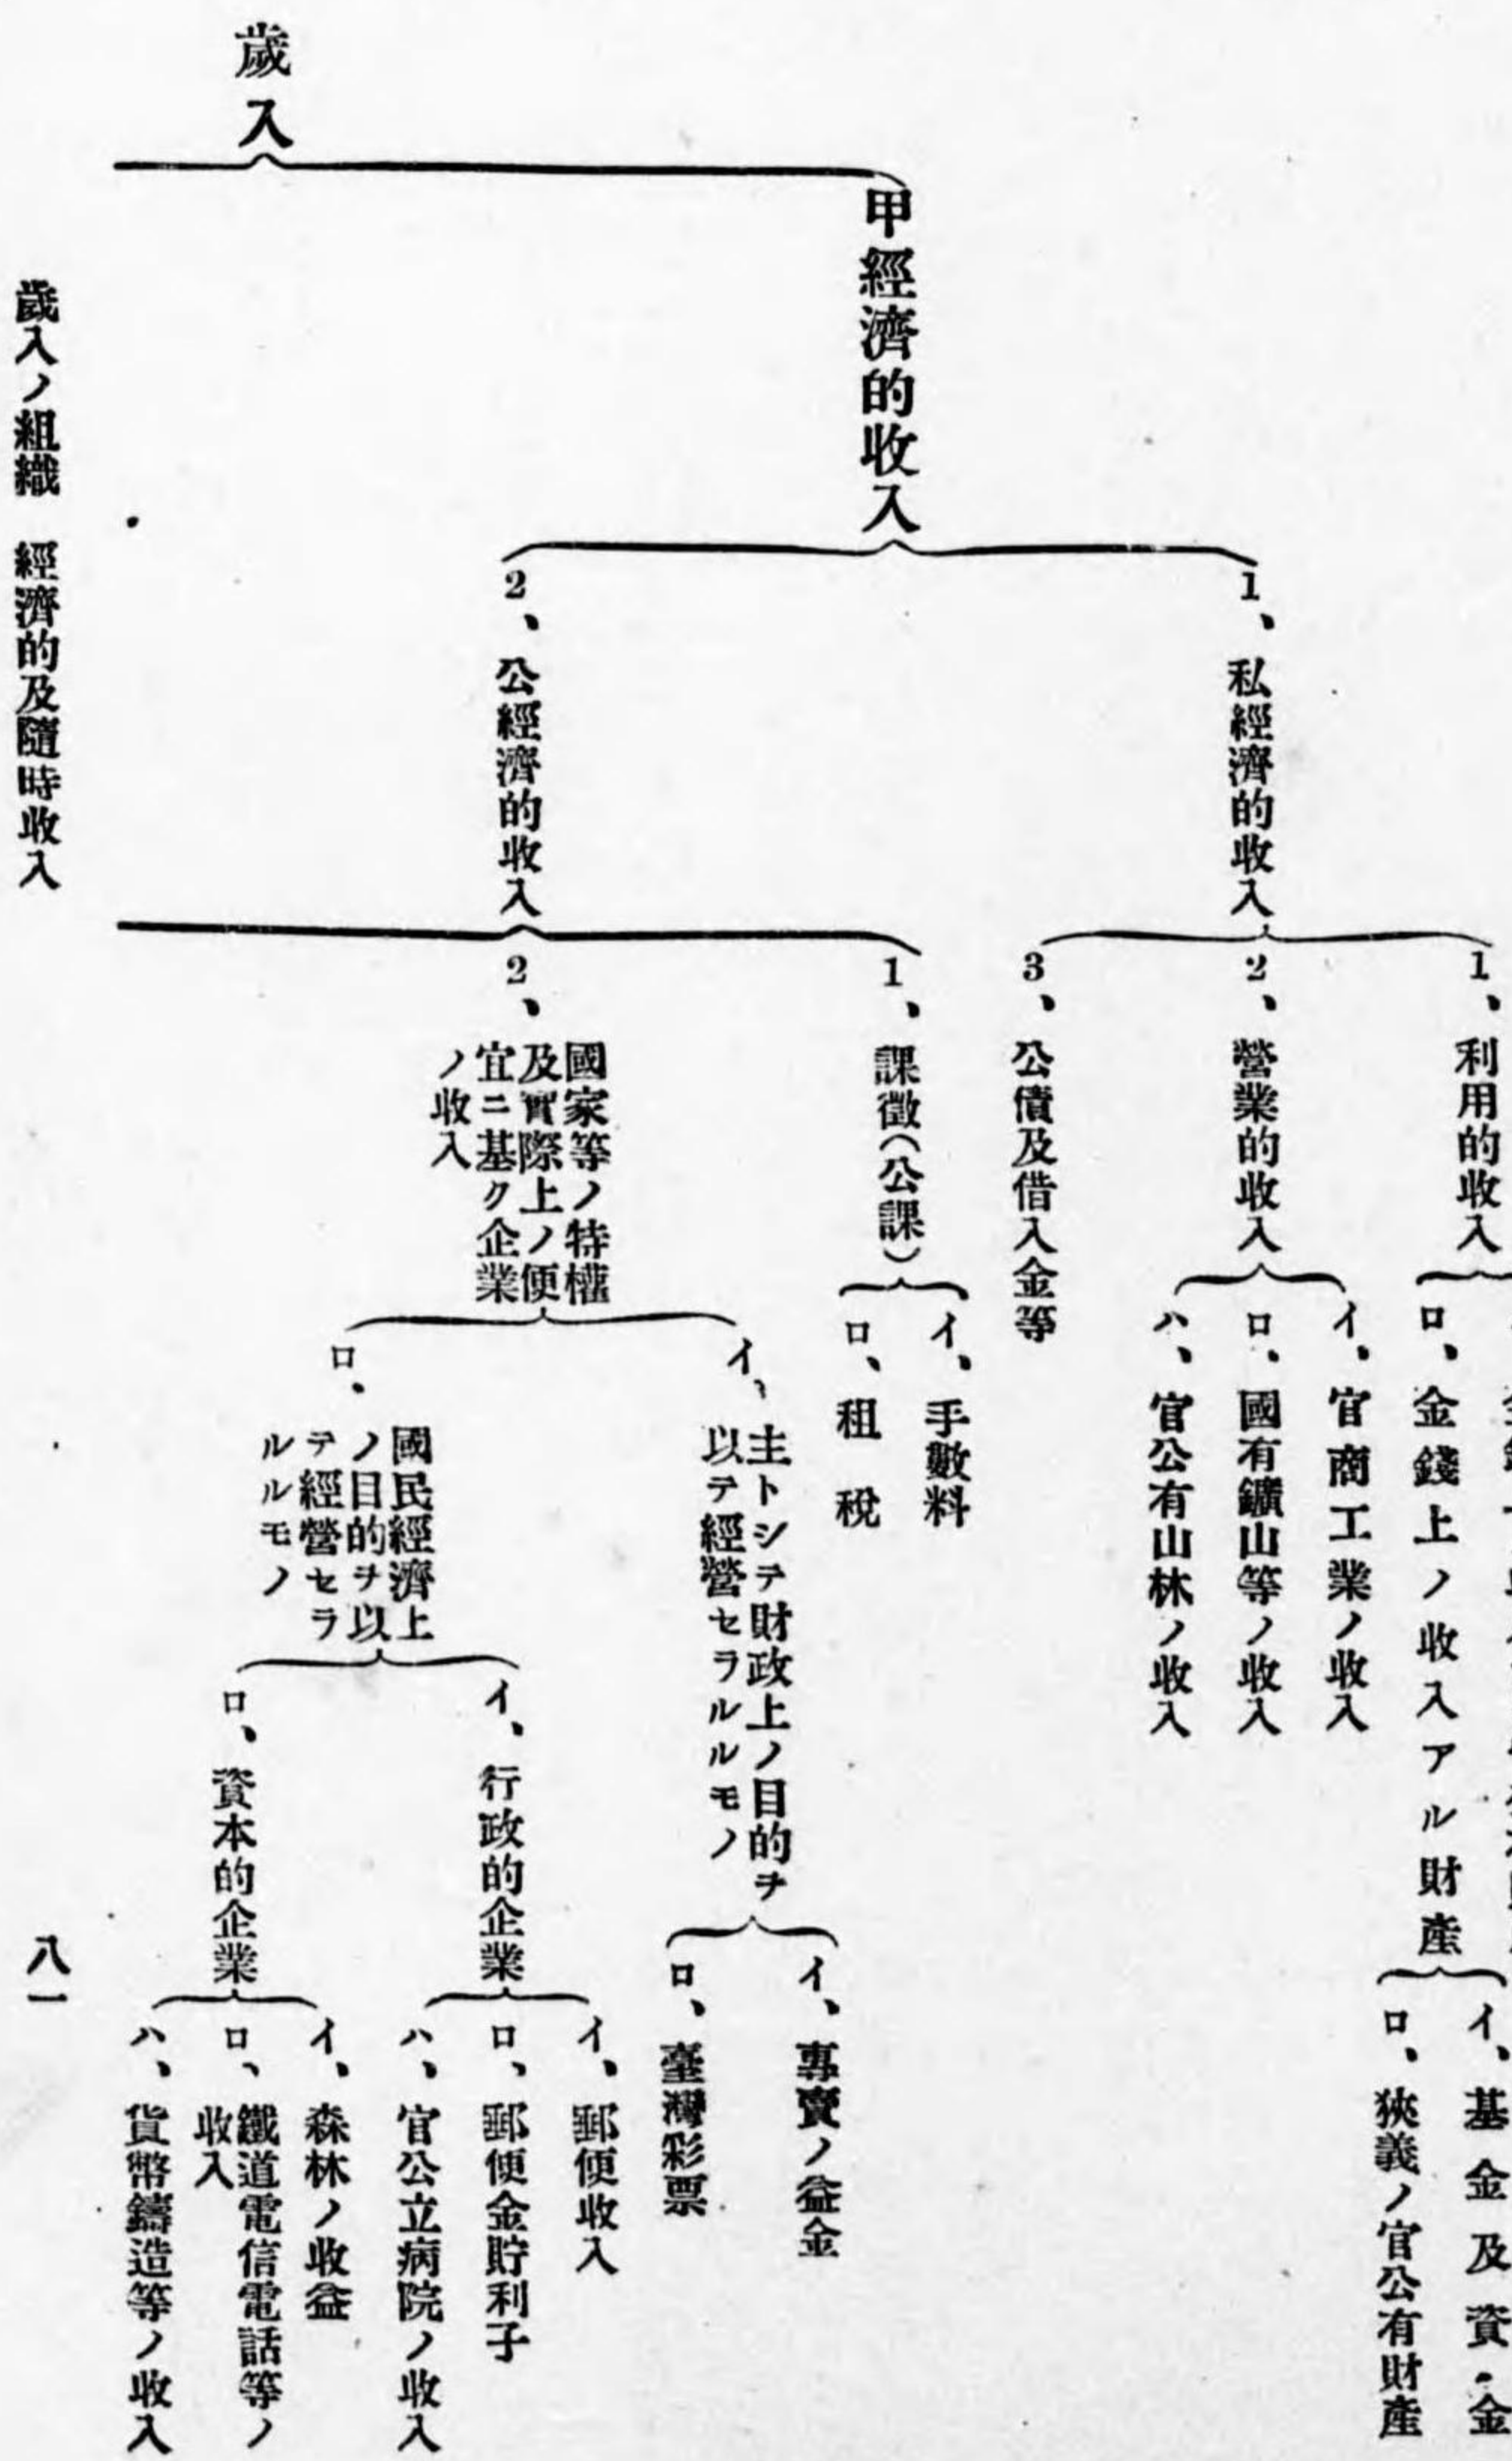 歲入
甲經濟的收入
1、私經濟的收入
1、利用的收入
ロ、金錢上ノ收入アル財產
イ、基金及資金
ロ、狹義ノ官公有財產
2、營業的收入
イ、官商工業ノ收入
ロ、國有鑛山等ノ收入
ハ、官公有山林ノ收入
3、公債及借入金等
2、公經濟的收入
1、課徵(公課)
イ、手數料
ロ、租稅
2、國家等ノ特權
及實際上ノ便
宜ニ基ク企業
ノ收入
イ、主トシテ財政上ノ目的ヲ
以テ經營セラルルモノ
イ、專賣ノ益金
ロ、臺灣彩票
ロ、國民經濟上
ノ目的ヲ以
テ經營セラ
ルルモノ
イ、行政的企業
イ、郵便收入
ロ、郵便金貯利子
ハ、官公立病院ノ收入
ロ、資本的企業
イ、森林ノ收益
ロ、鐵道電信電話等ノ
收入
ハ、貨幣鑄造等ノ收入
歲入ノ組織 經濟的及隨時收入
八一